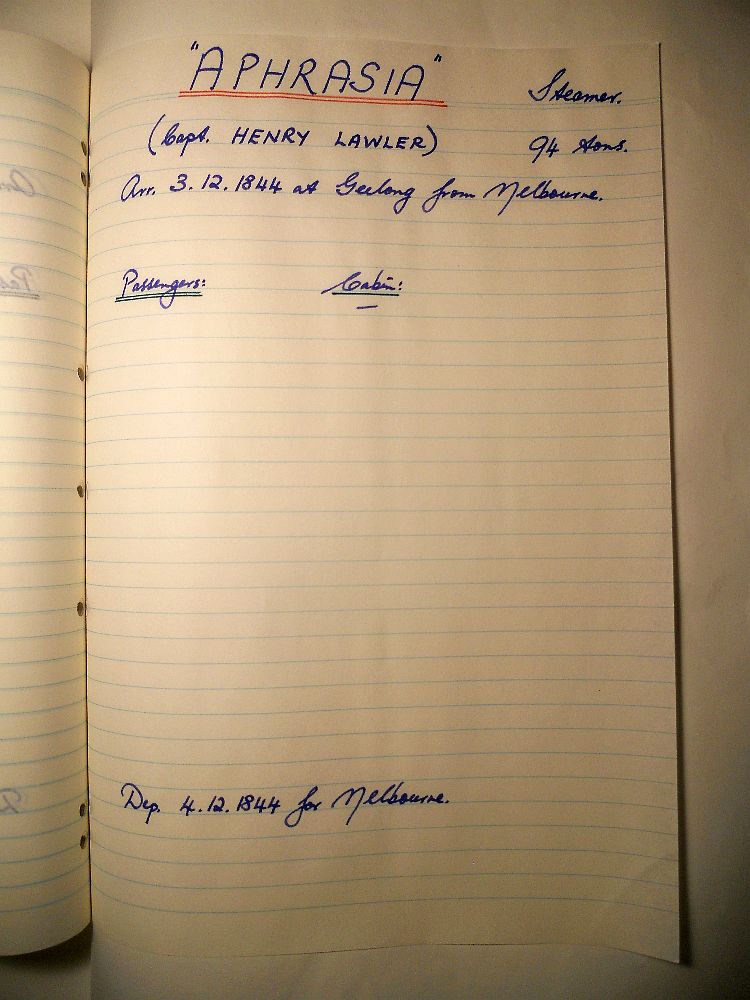 "APHRASIA" Steamer.
(Capt. HENRY LAWLER) 94 tons.
Arr. 3.12.1844 at Geelong from Melbourne.
Passengers: Cabin:
—
Dep. 4.12.1844 for Melbourne.